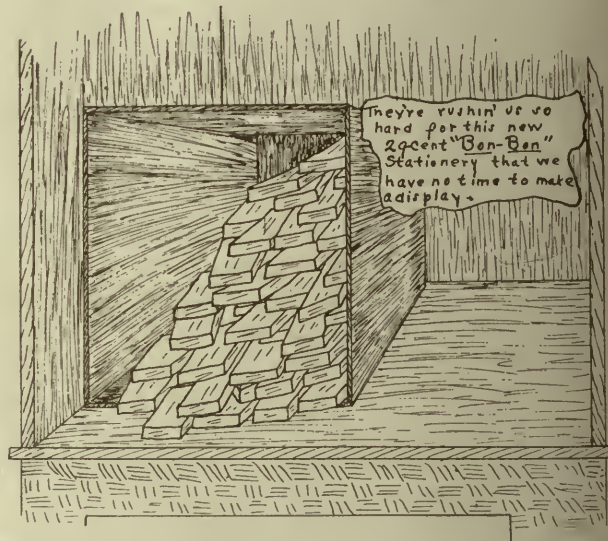 They're rushin' us so
hard for this new
29cent "Bon-Bon"
Stationery that we
have no time to make
adisplay.